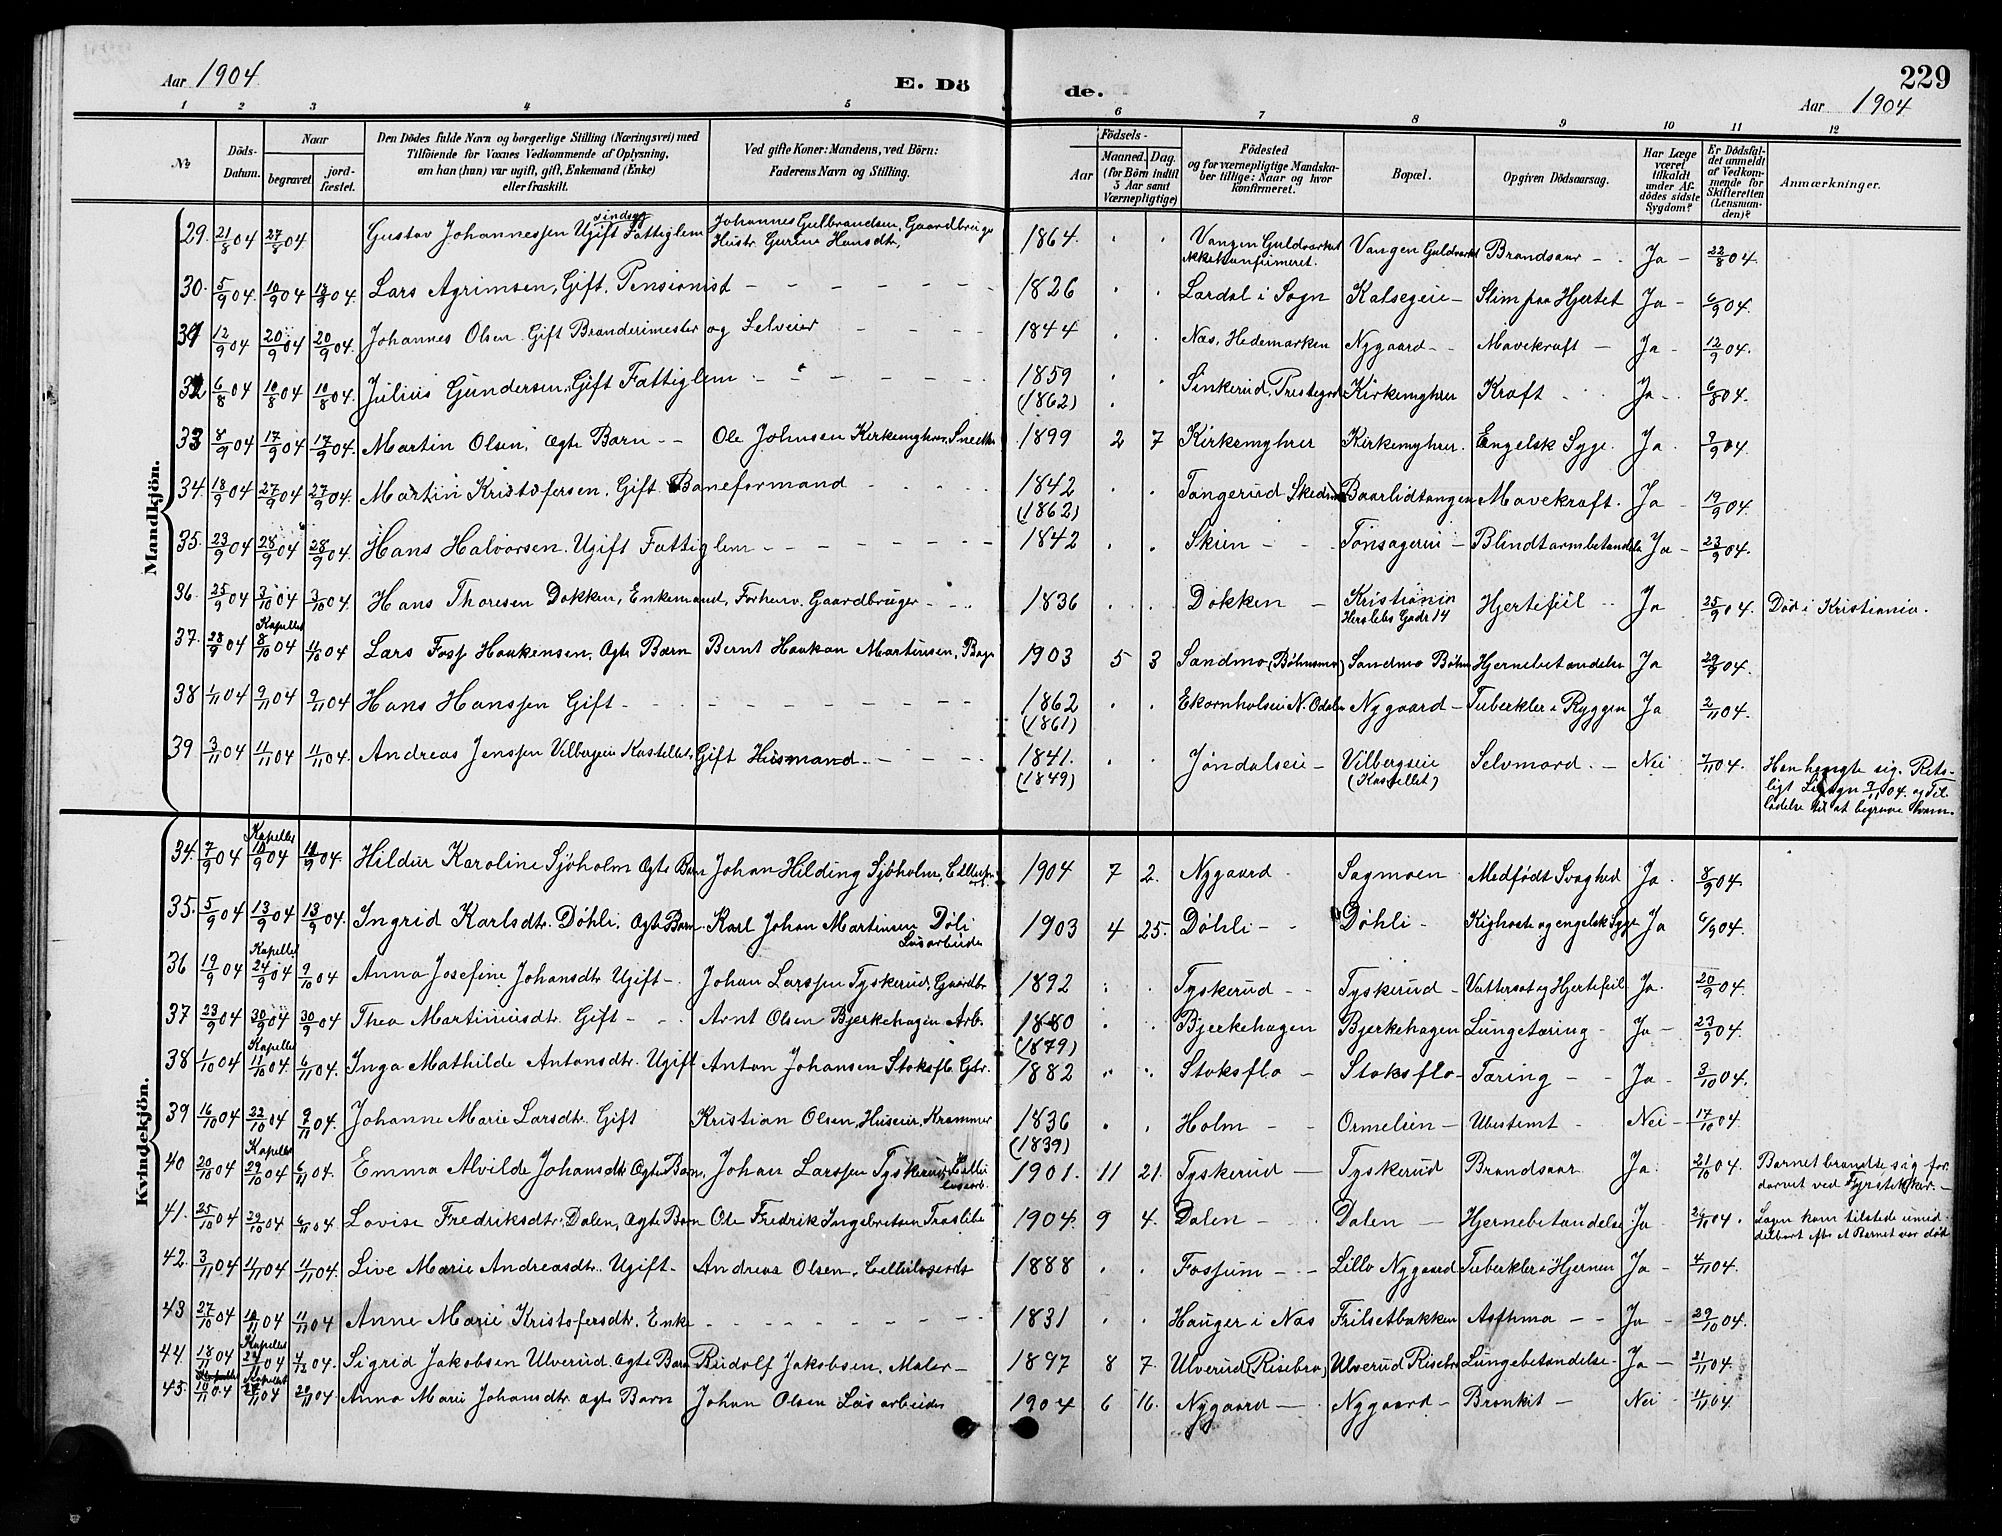 Aar 1904
E. Dö
de.
229
Aar 1904
1 2 3 4 5 6 7 8 9 10 11 12
№
Döds-Datum.
Naar
begravet
jordfæstet.
Den Dödes fulde Navn og borgerlige Stilling (Næringsvei) med
Tilföiende for Voxnes Vedkommende af Oplysning,
om han (hun) var ugift, gift, Enkemand (Enke)
eller fraskilt.
Ved gifte Koner: Mandens, ved Börn:
Faderens Navn og Stilling.
Födsels-
Aar
Maaned. Dag.
(for Börn indtil
5 Aar samt
Værnepligtige)
Födested
og for værnepligtige Mandskaber tillige: Naar og hvor
konfirmeret.
Bopæl.
Opgiven Dödsaarsag.
Har Læge
været
tilkaldt
under Afdödes sidste
Sygdom?
Er Dödsfaldet anmeldt
af Vedkommende for
Skifteretten
(Lensmanden)?
Anmærkninger.
Mandkjön.
29. 21/8 04 27/8 04 Gustav Johannessen Ugift sindssyg Fattiglem Johannes Gulbrandsen, Gaardbruger Hustr. Gurine Hansdtr, 1864. Vangen Guldværket Ikke konfirmeret. Vangen Guldværket Brandsaar - Ja - 22/8 04.
30. 5/9 04 10/9 04 Lars Agrimsen, Gift, Pensionist - 1826 Lardal i Sogn Kalsegeie - Slim paa Hjertet Ja - 6/9 04.
31 12/9 04 20/9 04 20/9 04. Johannes Olsen Gift Brænderimester og Selveier 1844 Næs, Hedemarken Nygaard - Mavekræft - Ja - 12/9 04.
32 6/8 04 10/8 04 10/8 04. Julius Gundersen, Gift Fattiglem 1859 (1862) Sinkerud, Kirkemyhrer Kræft Ja - 6/8 04.
33 8/9 04 17/9 04 17/9 04. Martin Olsen, Ægte Barn - Ole Johnsen Kirkemyhren, 1899 2 7 Kirkemyhrer Kirkemyhrer. Engelsk Syge. Ja 9/9 04.
34. 18/9 04 27/9 04 27/9 04. Martin Kristofersen, Gift Baneformand 1842 (1862) Tangerud Skedsmo Baarlidtangen Mavekræft. Ja 19/9 04.
35. 23/9 04 28/9 04 28/9 04. Hans Halvorsen. Ugift Fattiglem 1842 Skien Tonsageeie - Blindtarmbetændelse Ja - 23/9 04.
36. 25/9 04 3/10 04 3/10 04. Hans Thoresen Dokken, Enkemand, Forhenv. Gaardbruger 1836 Dokken - Kristiania Herslebs Gade 14 Hjertefeil Ja 25/9 04. Død i Kristiania.
37. 28/9 04 Kapellet 8/10 04 11/10 04. Lars Haakensen, Ægte Barn Bernt Haakon Martinsen, 1903 5 3 Sandmo (Böhnsmo) Sandmo Böhn Hjernebetændelse Ja 29/9 04.
38 1/11 04 9/11 04 9/11 04. Hans Hanssen Gift 1862 (1861) Ekornholseie N. Odalen Nygaard - Tuberkler i Ryggen Ja 2/11 04.
39 3/11 04 11/11 04 11/11 04. Andreas Jenssen Vilbergseie Kastellet, Gift Husmand 1841. (1849) Jøndalseie - Vilbergseie (Kastellet) Selvmord. - Nei 7/11 04. Han hængte sig. Retsligt Ligsyn 7/11 04. og Tilladelse til at begrave ham.
Kvindekjön.
34. 7/9 04 Kapellet 10/9 04 04. Hildur Karoline Sjöholm Ægte Barn Johan Hilding Sjöholm, 1904 7 2. Nygaard Sagmoen Medfødt Svaghed Ja. 8/9 04.
35. 5/9 04 13/9 04 13/9 04. Ingrid Karlsdtr. Döhli. Ægte Barn Karl Johan Martinsen Döli Løsarbeider 1903 4 25. Döhli - Döhli - Kighoste og engelsk Syge Ja 6/9 04.
36 19/9 04 Kapellet 24/9 04 9/10 04 Anna Josefine Johansdtr Ugift - Johan Larssen Tyskerud, Gaardbr 1892 Tyskerud - Tyskerud - Vattersot og Hjertefeil Ja. 20/9 04.
37 23/9 04 30/9 04 30/9 04 Thea Martiniusdtr Gift - Arnt Olsen Bjerkehagen Arb. 1880 (1879) Bjerkehagen Bjerkehagen Lungetæring - Ja - 23/9 04.
38 1/10 04 Kapellet 11/10 04 6/11 04. Inga Mathilde Antonsdtr. Ugift Anton Johansen Stoksflo Gbr. 1882 Stoksflo - Stoksflo - Tæring - Ja - 3/10 04.
39 16/10 04 22/10 04 9/11 04. Johanne Marie Larsdtr. Gift Kristian Olsen, Huseier, Kræmmer 1836 (1839) Holm - Ormelien - Ubestemt - Nei - 17/10 04.
40 20/10 04 Kapellet 29/10 04 6/11 04. Emma Alvilde Johansdtr Ægte Barn, Johan Larssen Tyskerud, 1901. 11 21. Tyskerud - Tyskerud Brandsaar Ja. 21/10 04. Barnet brændte sig fordærvet ved Fyrstikker. -
41. 25/10 04 29/10 04 6/11 04. Lovise Fredriksdtr. Dalen, Ægte Barn Ole Fredrik Ingebretsen 1904. 9 4. Dalen - Dalen - Hjernebetændelse Ja 26/10 04. Lægen kom tilstede umiddelbart efter at Barnet var död
42. 3/11 04 11/11 04 11/11 04. Live Marie Andreasdtr. Ugift - Andreas Olsen. Cellulosearb 1888 Fossum - Lille Nygaard Tuberkler i Hjernen Ja - 4/11 04.
43 27/10 04 10/11 04 11/11 04 Anne Marie Kristofersdtr. Enke 1831 Hauger i Næs Frilsetbakken Asthma - Ja - 29/10 04.
44. 18/11 04 Kapellet 04 4/12 04. Sigrid Jakobsen Ulverud. Ægte Barn Rudolf Jakobsen, Maler - 1897 8 7. Ulverud (Risebro) Ulverud Risebro Lungebetændelse - Ja - 21/11 04.
45. 10/11 04 Kapellet 04 20/11 04. Anna Marie Johansdtr Ægte Barn Johan Olsen Løsarbeider 1904 6 16. Nygaard - Nygaard - Bronkit - Nei 11/11 04.